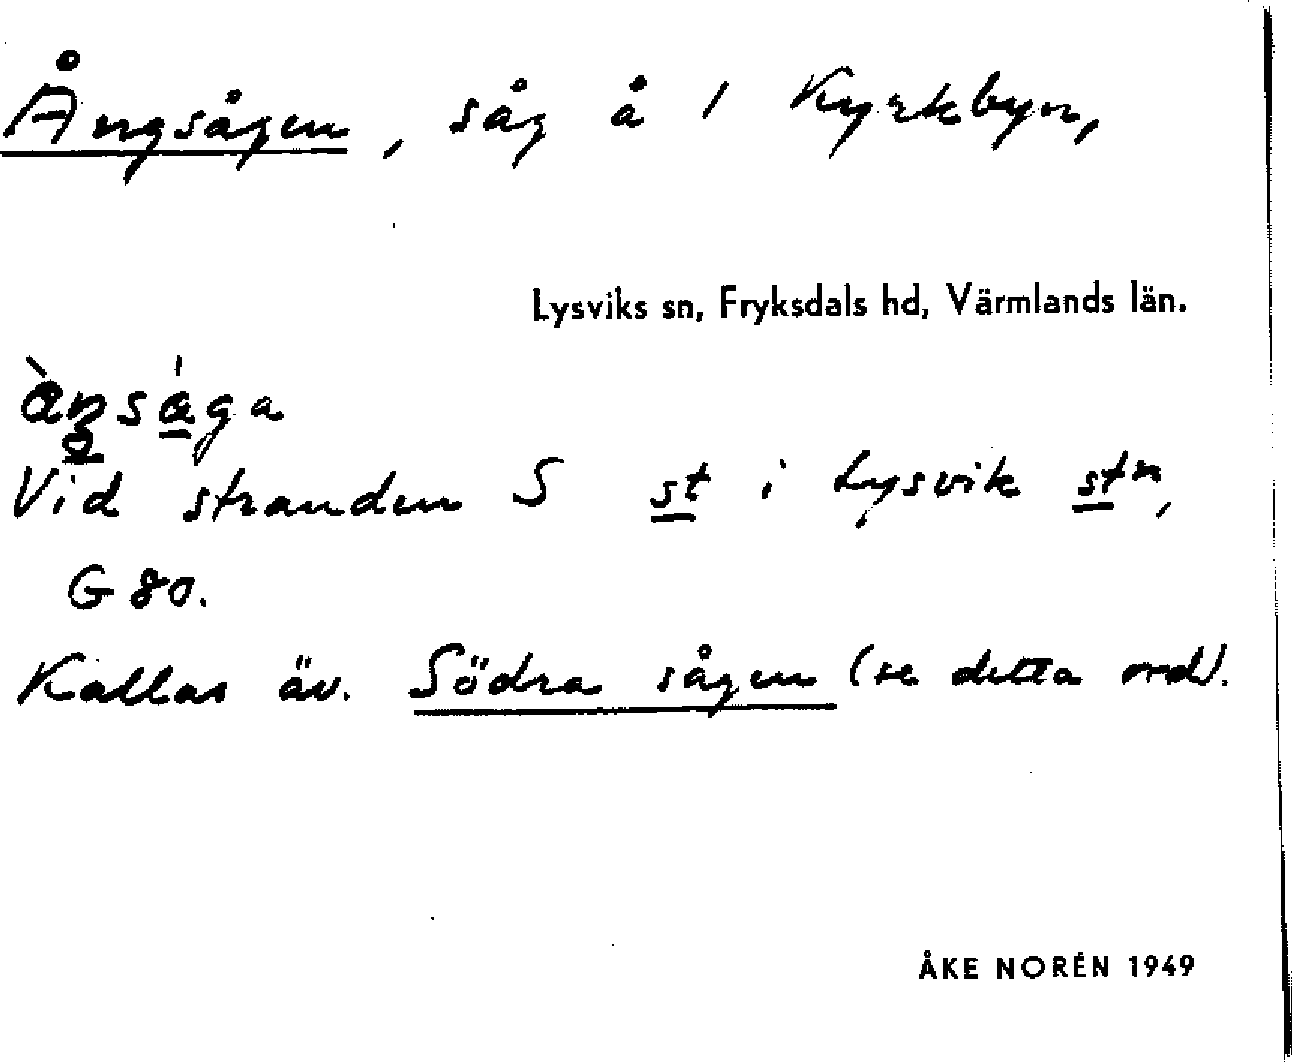 Ångsågen, såg å 1 Kyrkbyn,
Lysviks sn, Fryksdals hd, Värmlands län.
Vid stranden S st i Lysvik stn,
G 80.
Kallas äv. Södra sågen (se detta ord).
ÅKE NORÉN 1949